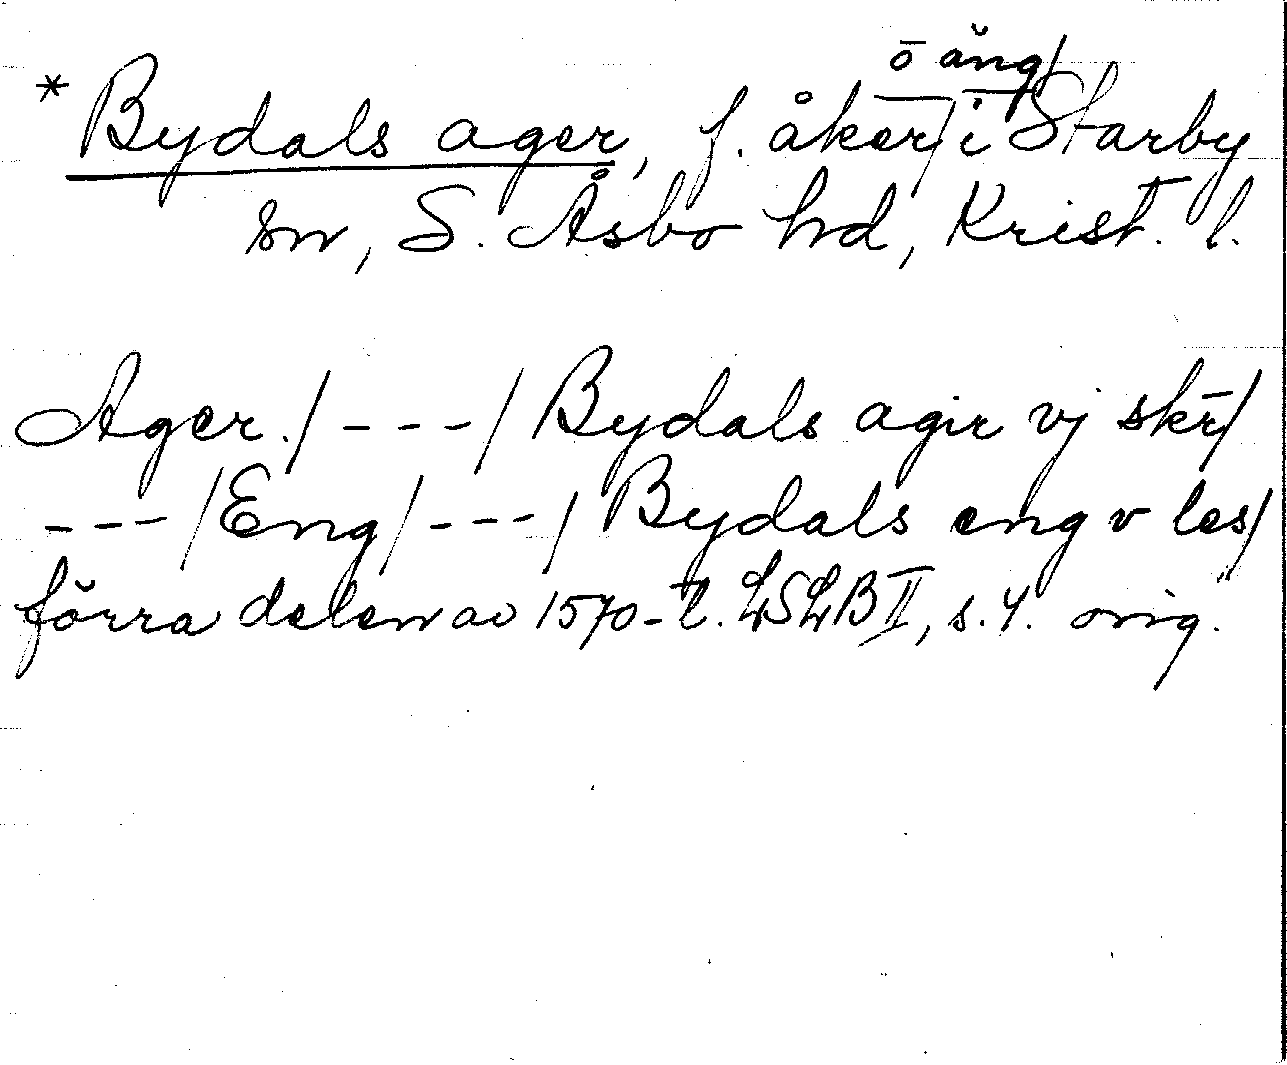 * Bydals ager, f. åker/ o äng/ i Starby
sn, S. Åsbo hd, Krist. l.
Ager./ - - - / Bydals agir vj skr/
- - - /Eng/ - - - / Bydals eng v les/
förra delen av 1570-t. LSLB II, s. 4. orig.